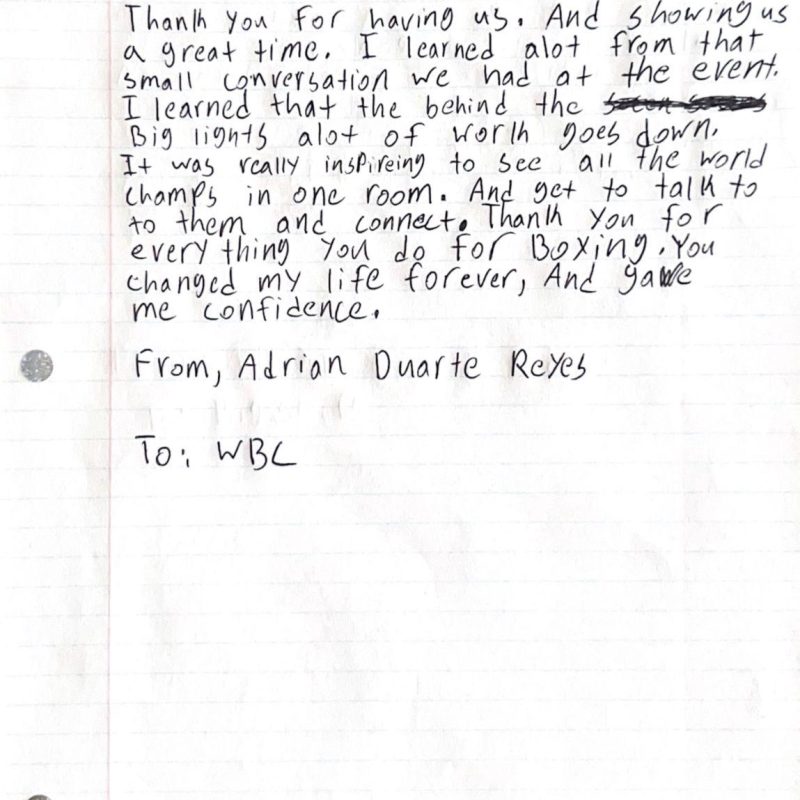 Thank you for having us. And showing us
a great time. I learned alot from that
small conversation we had at the event.
I learned that the behind the
Big lights alot of work goes down.
It was really inspireing to see all the world
champs in one room. And get to talk to
to them and connect. Thank you for
every thing you do for Boxing. You
changed my life forever, And gave
me confidence.
From, Adrian Duarte Reyes
To: WBC